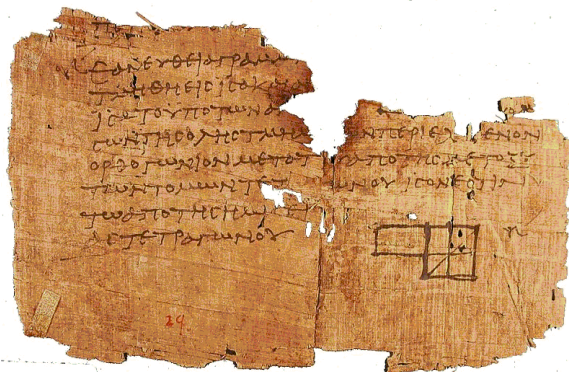 ΕΑΝΕΥΘΕΙΑΓΡΑΜΜ
ΤΜΗΘΗΕΙϹΙϹΑΚΑ
ΙϹΑΤΟΥΠΟΤΩΝΑ
ϹΩΝΤΗϹΟΛΗϹΤΜΗΜ ΝΠΕΡΙΕΧΟΜΕΝΟΝ
ΟΡΘΟΓΩΝΙΟΝΜΕΤΟΤ ΑΠΟΤΗϹΜΕΤΟΞΥ
ΤΩΝΤΟΜΩΝΤΕΤ ΩΝΟΥΙϹΟΝΕϹΤΙΝ
ΤΩΑΠΟΤΗϹΗΜΙ
ΤΕΤΡΑΓΩΝΟΥ
29